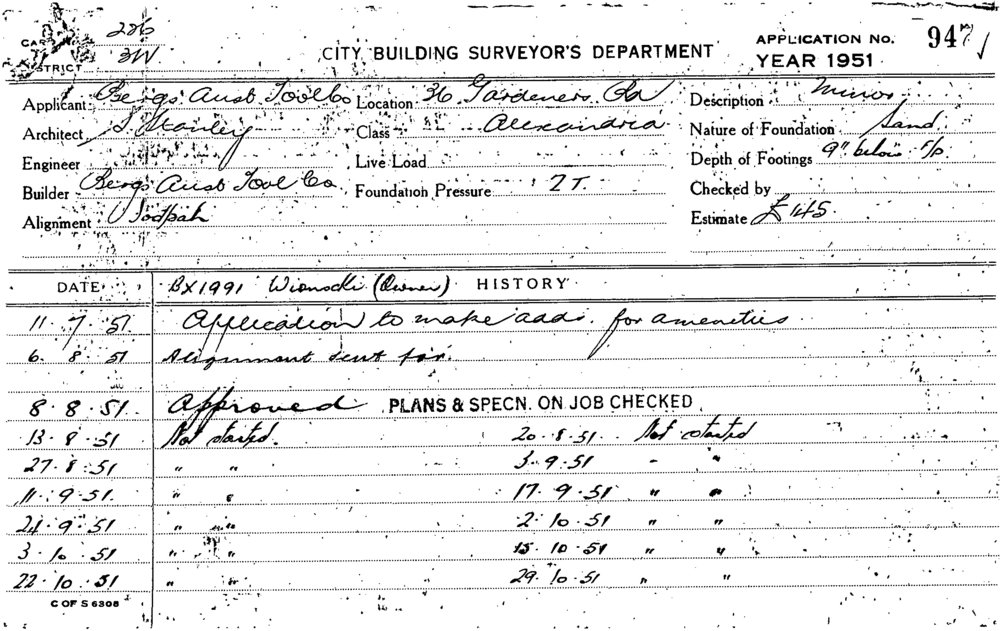 CARD 226
DISTRICT 3W
CITY BUILDING SURVEYOR'S DEPARTMENT
APPLICATION No. 947
YEAR 1951
Applicant Bergs Aust Tool Co Location 36 Gardeners Rd Description Minor
Architect S Stanley Class Alexandria Nature of Foundation Sand
Engineer Live Load Depth of Footings 9" below
Builder Bergs Aust Tool Co Foundation Pressure 2 T. Checked by
Alignment Estimate £145
DATE BX1991 (Owner) HISTORY
11 . 7 . 51 Application to make adds. for amenities
6 . 8 . 51 Alignment sent for.
8 . 8 . 51 Approved PLANS & SPECN. ON JOB CHECKED
13 . 8 . 51 Not started. 20 . 8 . 51 . Not started
27 . 8 . 51 " " 3 . 9 . 51 " "
11 . 9 . 51 . " " 17 . 9 . 51 " "
24 . 9 . 51 " " 2 . 10 . 51 " "
3 . 10 . 51 " " 15 . 10 . 51 " "
22 . 10 . 51 " " 29 . 10 . 51 " "
C OF S 6308